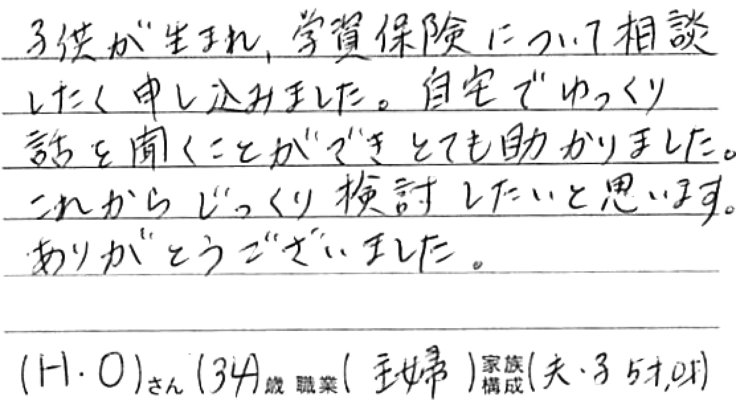 子供が生まれ、学資保険について相談
したく申し込みました。自宅でゆっくり
話を聞くことができとても助かりました。
これからじっくり検討したいと思います。
ありがとうございました。
(H・O)さん(34)歳 職業(主婦)家族構成(夫・子 5才,0才)